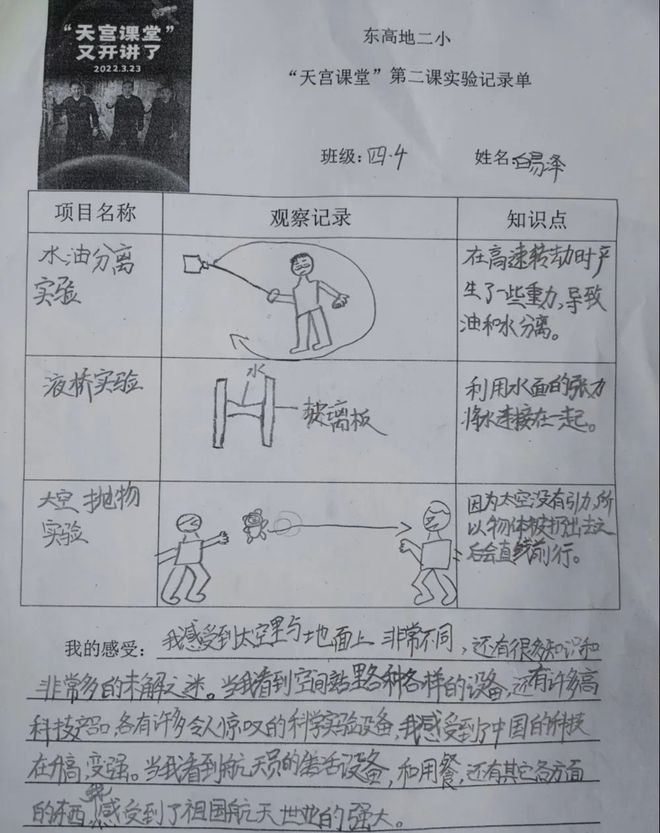 “天宫课堂”
又开讲了
2022.3.23
东高地二小
“天宫课堂”第二课实验记录单
班级：四.4 姓名：白易泽
项目名称 观察记录 知识点
水油分离
实验
在高速转动时产
生了一些重力，导致
油和水分离。
液桥实验
水
玻离板
利用水面的张力
将水连接在一起。
太空抛物
实验
因为太空没有引力，所
以物体被扔出去之
后会直线前行。
我的感受：我感受到太空里与地面上非常不同，还有很多知识和
非常多的未解之迷。当我看到空间站里各种各样的设备，还有许多高
科技产品，各有许多令人惊叹的科学实验设备，我感受到了中国的科技
在升高，变强。当我看到航天员的生活设备，和用餐，还有其它各方面
的东西，我感受到了祖国航天世业的强大。